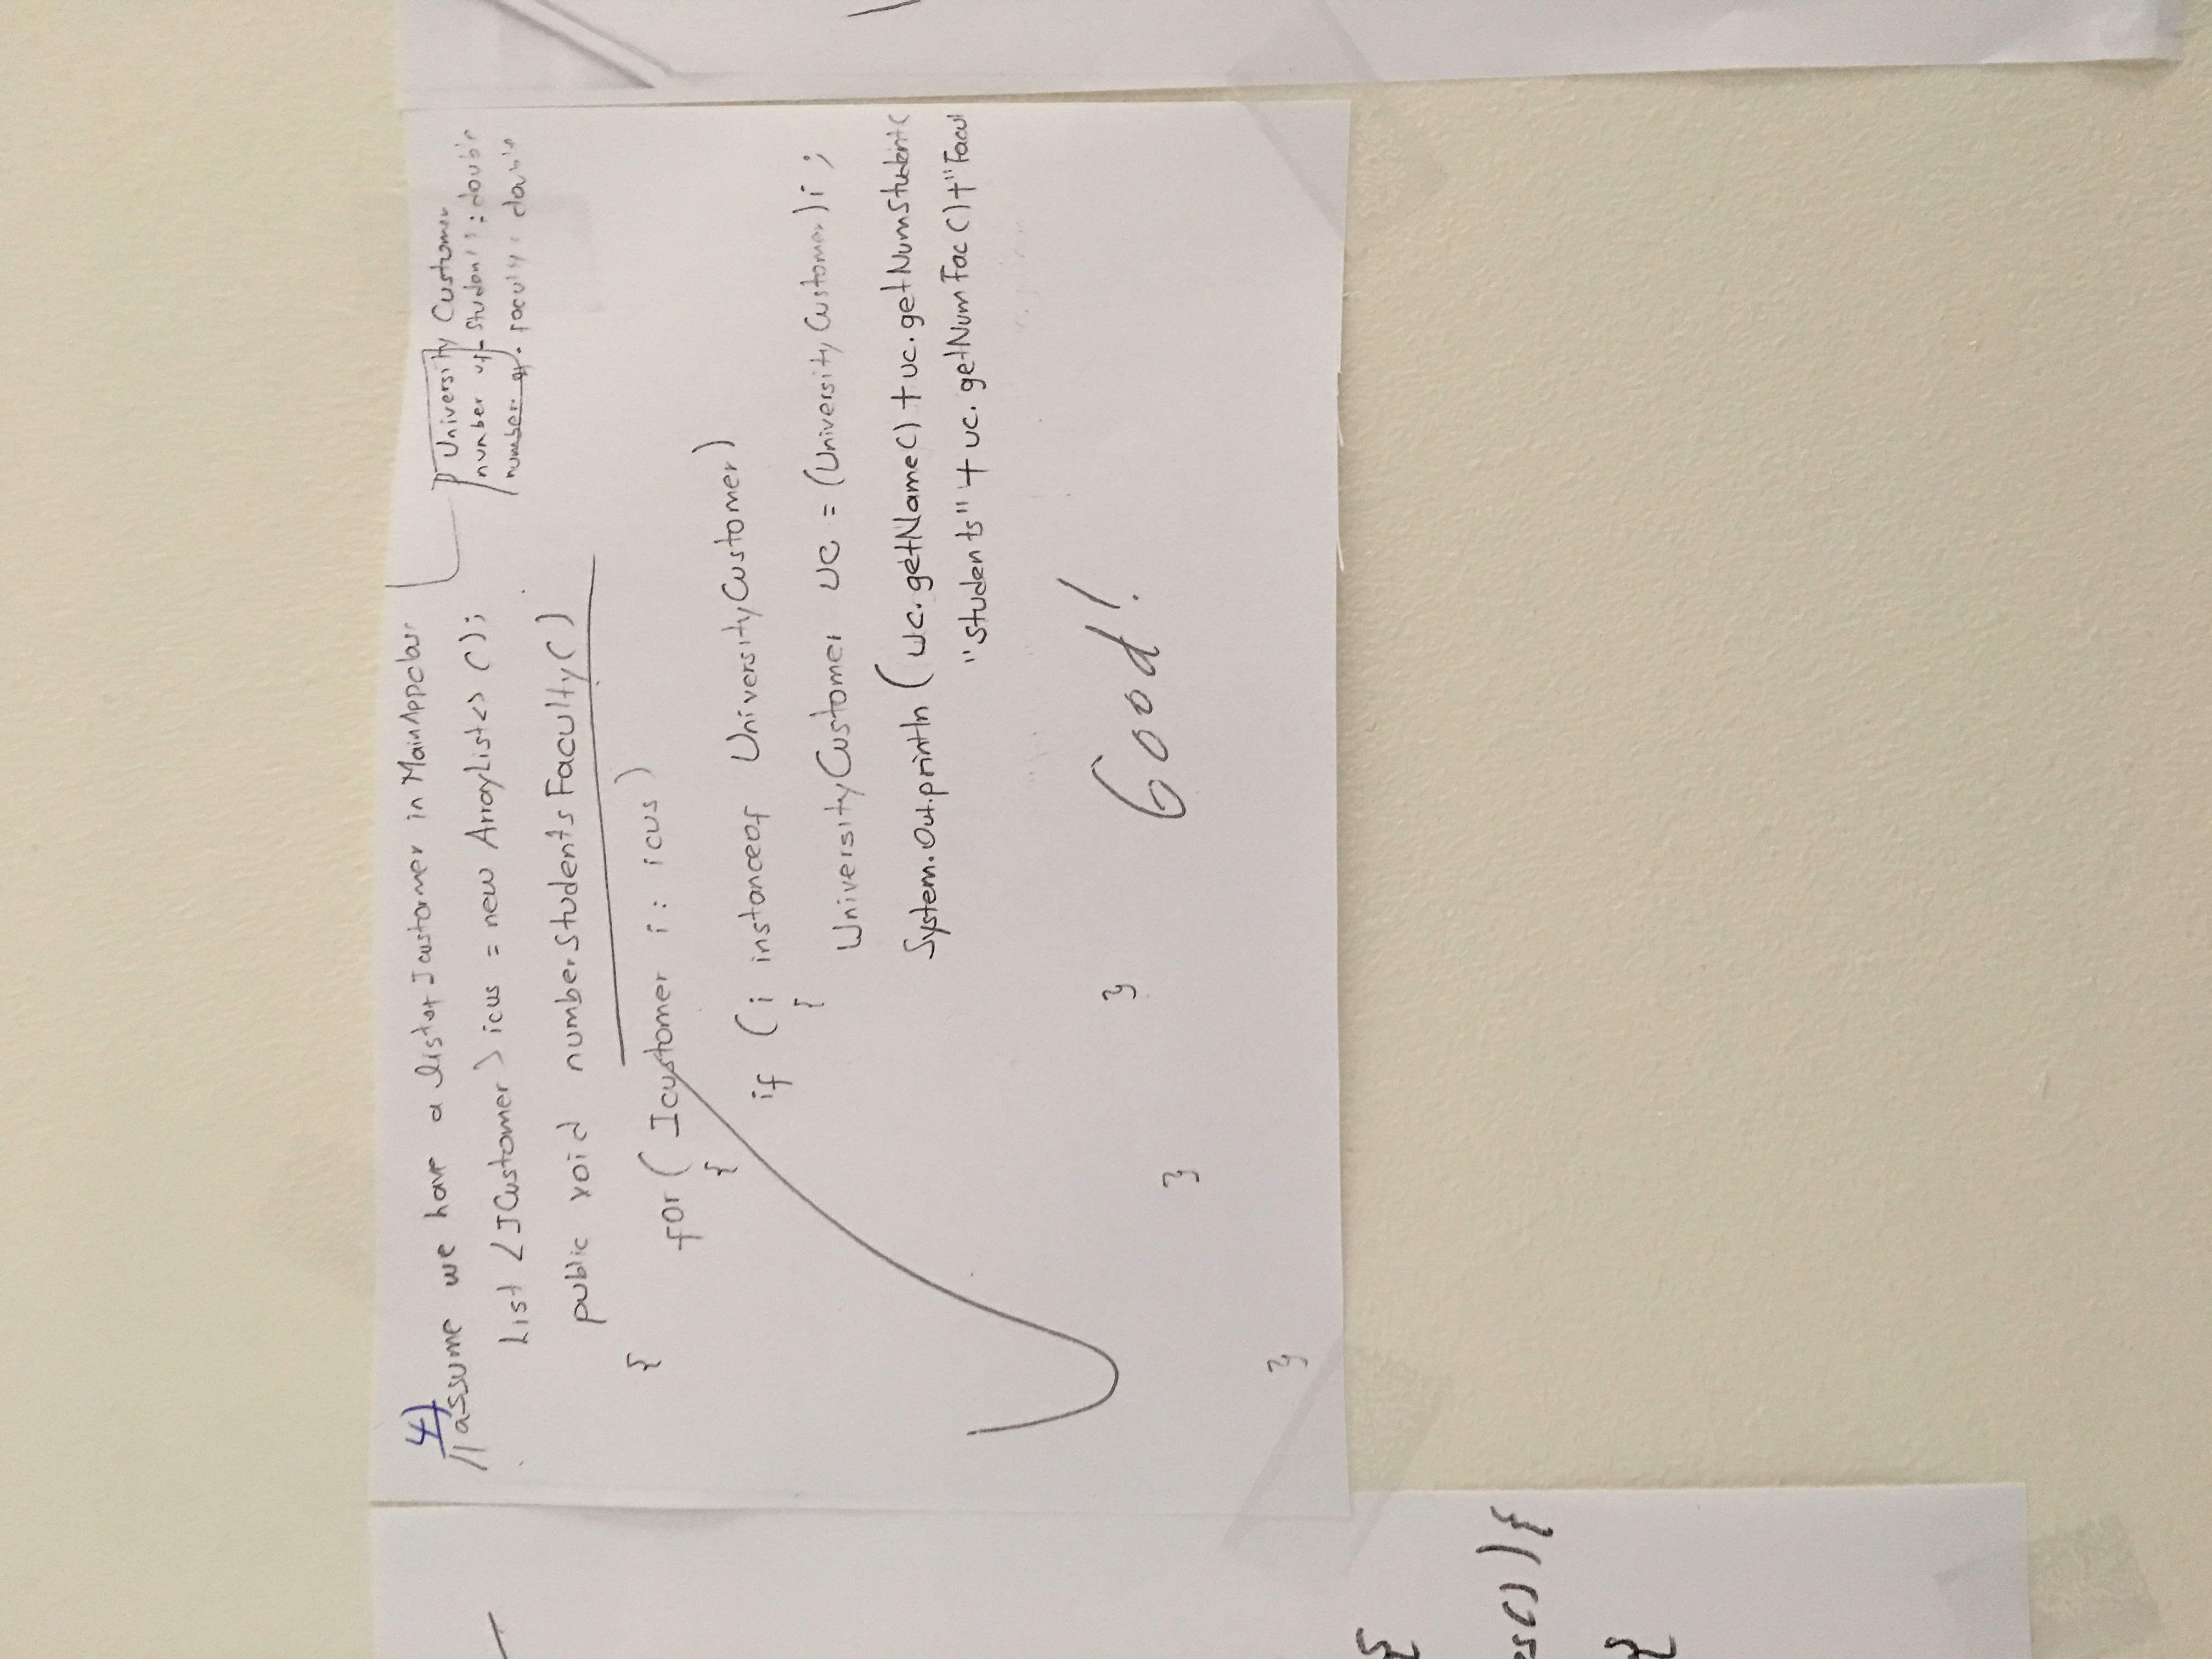 4)
//assume we have a list of Icustomer in MainAppclass
List <ICustomer> icus = new ArrayList<> ();
public void numberStudentsFaculty()
{
for ( Icustomer i : icus )
{
if ( i instanceof UniversityCustomer)
{
UniversityCustomer uc = (UniversityCustomer) i ;
System.out.println ( uc.getName() + uc.getNumStudent(
"students" + uc. getNumFac () + "Facul
}
Good!
}
}
University Customer
number of students : double
number of faculty : double
{
es() ) {
{